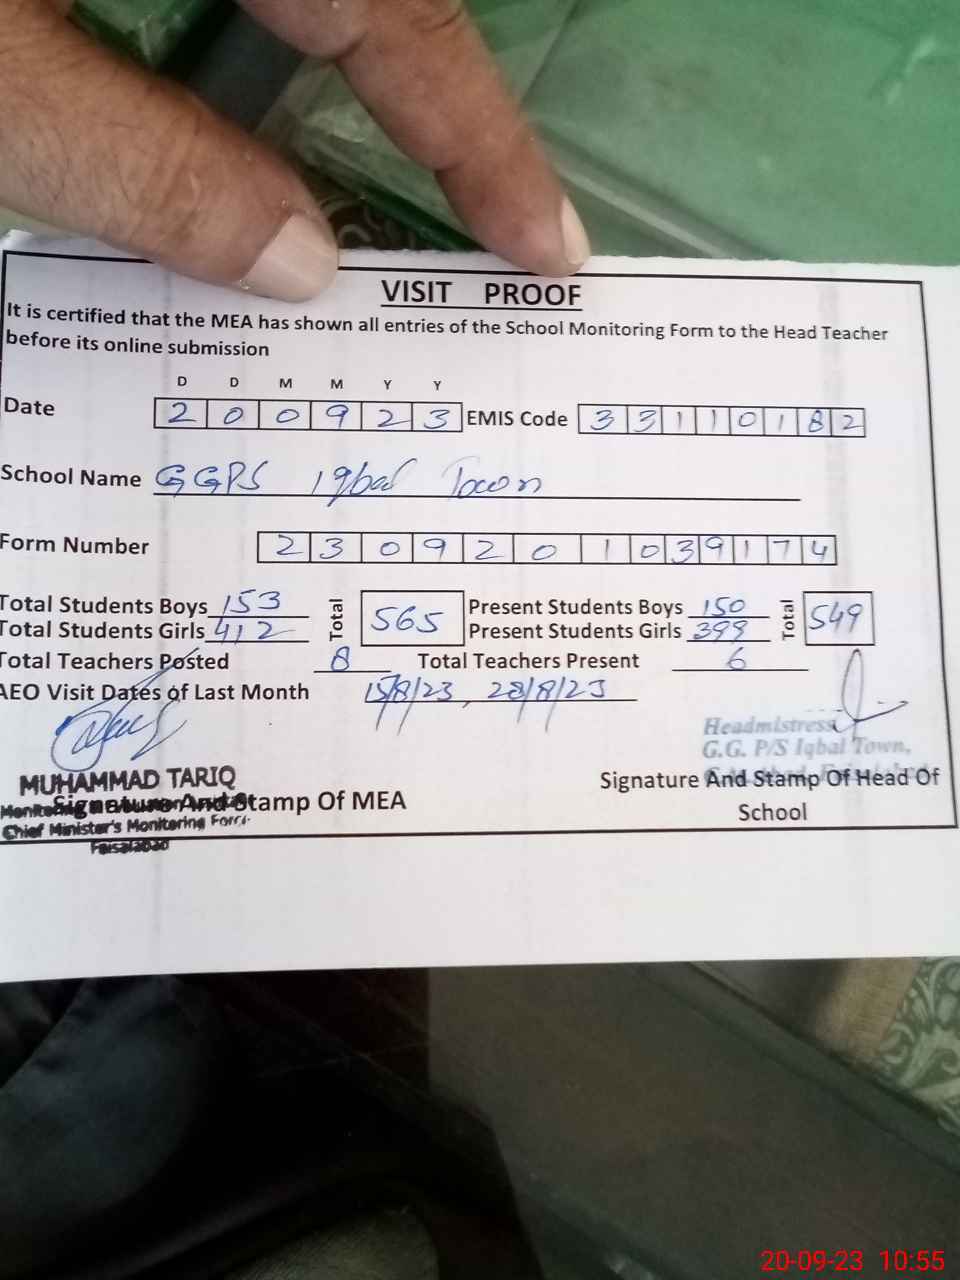 VISIT PROOF
It is certified that the MEA has shown all entries of the School Monitoring Form to the Head Teacher
before its online submission
D D M M Y Y
Date 2 0 0 9 2 3 EMIS Code 3 3 1 1 0 1 8 2
School Name GGPS Iqbal Town
Form Number 2 3 0 9 2 0 1 0 3 9 1 7 4
Total Students Boys 153 Total 565 Present Students Boys 150 Total 549
Total Students Girls 412 Present Students Girls 399
Total Teachers Posted 8 Total Teachers Present 6
AEO Visit Dates of Last Month 15/8/23, 28/8/23
Headmistress
G.G. P/S Iqbal Town,
MUHAMMAD TARIQ
Signature And Stamp Of MEA
Signature And Stamp Of Head Of
School
Chief Minister's Monitoring Force
Faisalabad
20-09-23 10:55